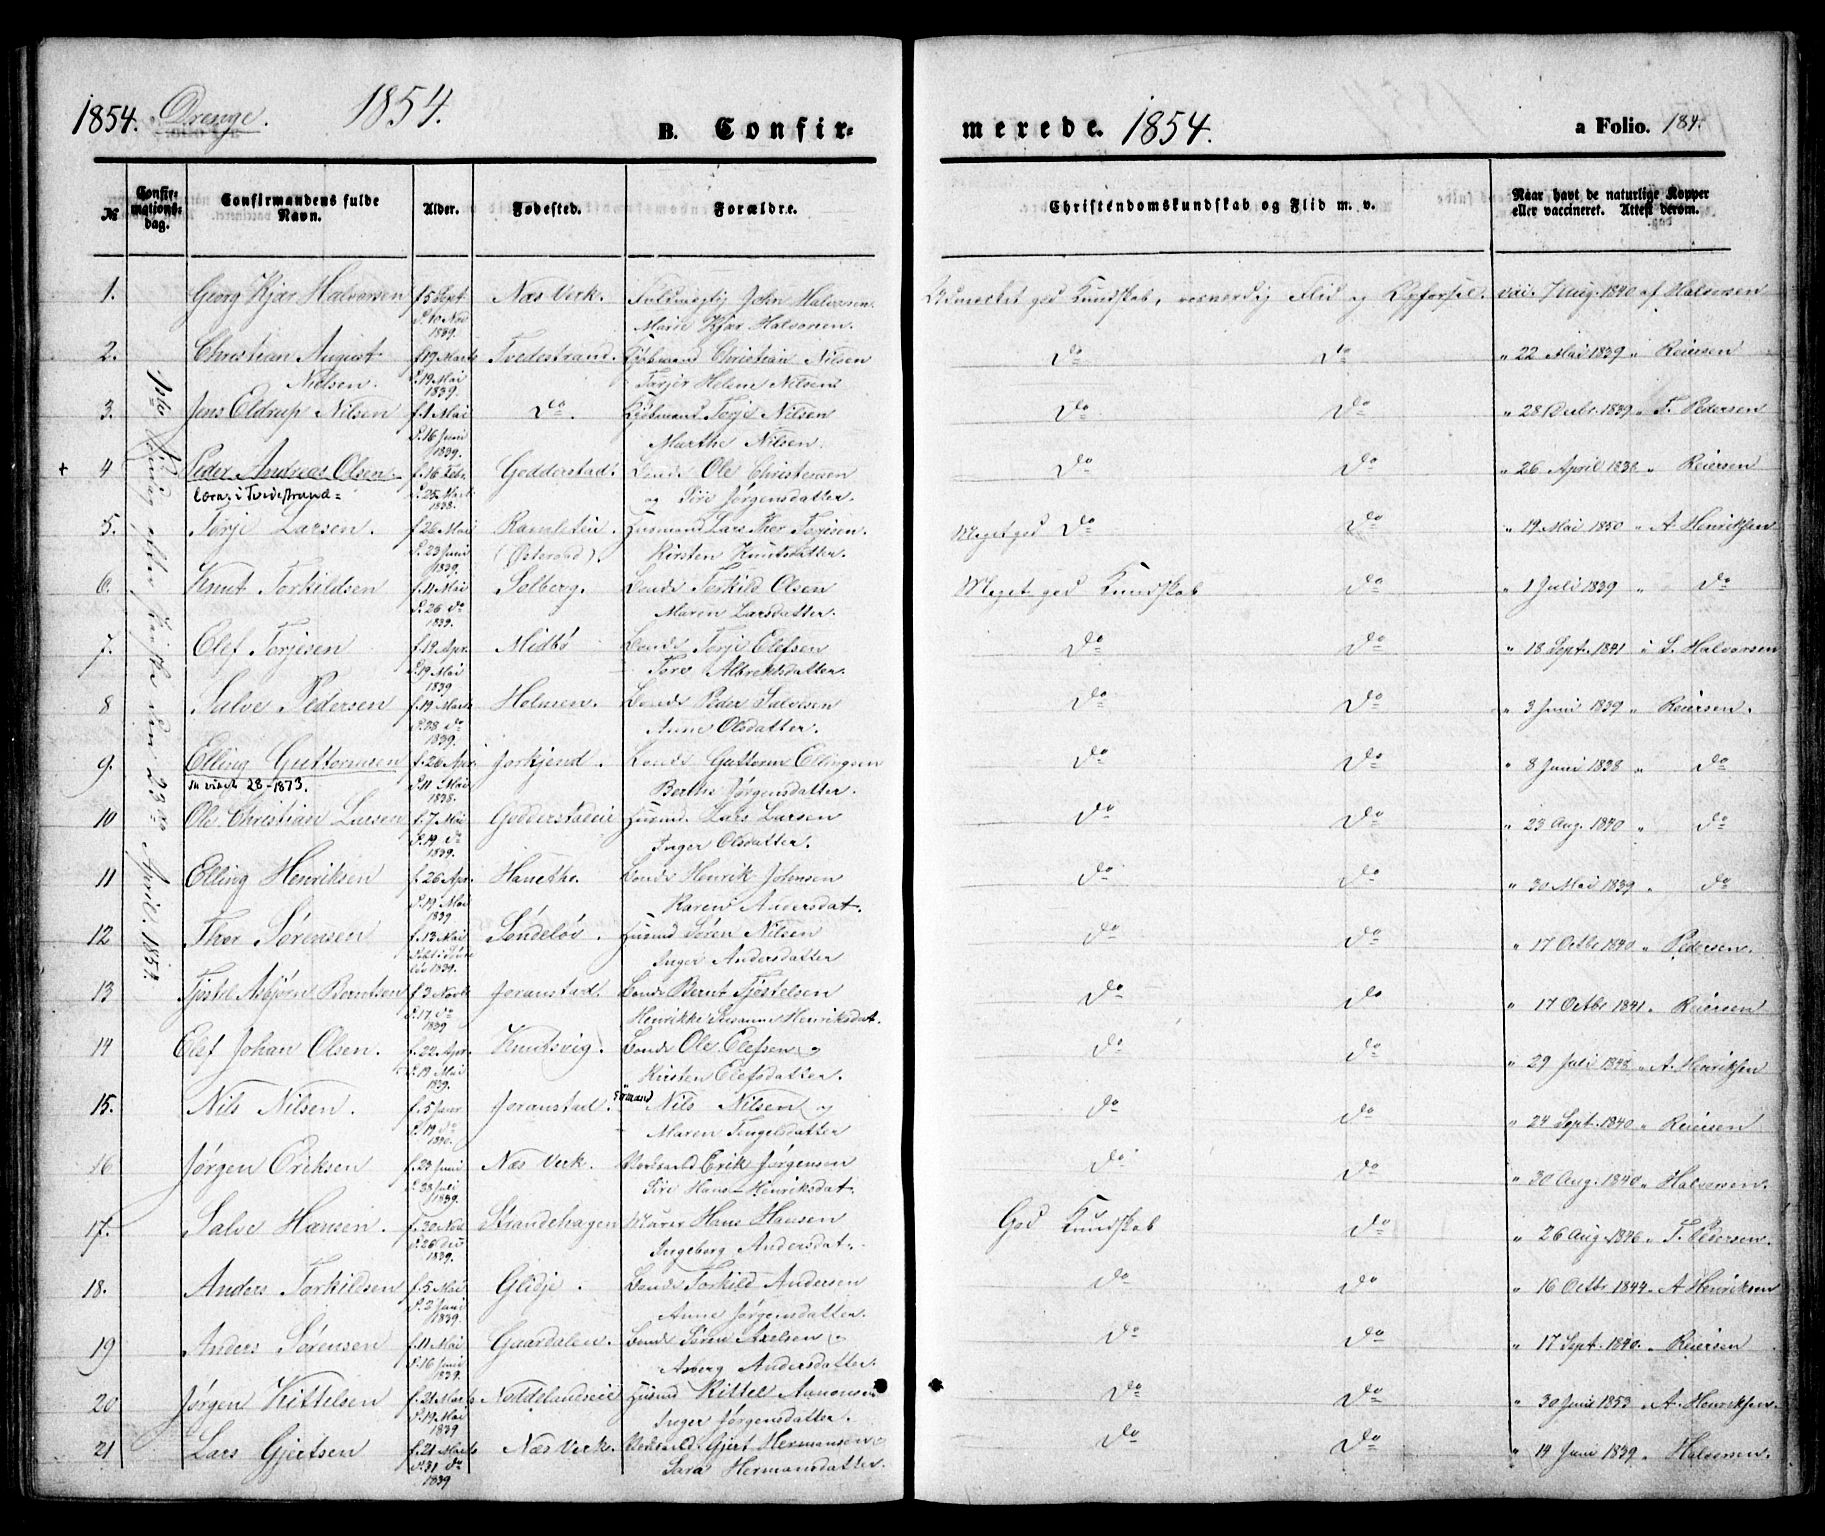 1854. Drenge. 1854. B. Confir-
merede. 1854. a Folio. 184.
№ Confirmationsdag. Confirmandens fulde Navn. Alder. Fødested. Forældre. Christendomskundskab og Flid m. v. Naar havt de naturlige Kopper eller vaccineret. Attest derom.
Søndag efter Paaske den 23de April 1854.
1. Georg Kjær Halvorsen f. 5 Sept. d. 10 Nov 1839. Næs Verk. Fuldmægtig John Halvorsen Marie Kjær Halvorsen. Udmærket god Kundskab, Flid og Opførsel. vac. 7 Aug. 1840 af Halvorsen
2. Christian August Nielsen. f. 19 Marts d. 19 Mai 1839. Tvedestrand. Kjøbmand Christian Nilsen Helene Nilsen do do " 22 Mai 1839 " Reiersen
3. Jens Eldrup Nilsen f. 1 Mai d. 16 Juni 1839. do. Kjøbmand Terje Nilsen Marthe Nilsen. do do " 28 Decbr. 1839 " T. Pedersen
+ 4 Peder Andreas Olsen. i Tvedestrand= f. 16 Febr. d. 25 Marts 1838. Godderstad. Bonde Ole Christensen og Siri Jørgensdatter. do do " 26 April 1838 " Reiersen
5. Terje Larsen. f. 26 Mai d. 23 Juni 1839. Ramleteie (Østeraad). Husmand Lars Thor Terjesen. Kirsten Knutsdatter. Meget god do do " 19 Mai 1850 " A Henriksen
6. Knut Torkildsen f. 11 Mai d. 26 do 1839. Solberg. Bonde Torkild Olsen Maren Larsdatter. Meget god Kundskab do " 1 Juli 1839 " do
7. Olef Terjesen f. 19 Apr. d. 19 Mai 1839 Midbö Bonde Terje Olefsen Tore Albrektsdatter. do do " 18 Sept. 1841 " S. Halvorsen
8 Salve Pedersen f. 19 Marts d. 28 do 1839. Holmen. Bonde Peder Salvesen Anne Olsdatter. do do " 3 Juni 1839 " Reiersen.
9. Elling Guttormsen 28-1873. f. 26 Apr. d. 11 Mai 1838. Jorkjend. Bonde Guttorm Ellingsen Berthe Jørgensdatter. do do " 8 Juni 1838 " do
10 Ole Christian Larsen f. 7 Mai d. 19 do 1839. Godderstadeie Husmd. Lars Larsen Inger Olsdatter. do do " 23 Aug. 1840 " do
11 Elling Henriksen f. 26 Apr. d. 19 Mai 1839 Hanetho. Bonde Henrik Johnsen Karen Andersdat. do do " 30 Mai 1839 " do
12 Thor Sørensen f. 13 Mai 1839. Søndeløv. Husmd Søren Nilsen Inger Andersdatter do do " 17 Octbr 1840 " Pedersen.
13 Tjøstel Asbjørn Berntsen f. 3 Novb d. 17 do 1839 Joranstad. Bonde Bernt Tjøstelsen Henrikke Susanne Henriksdat. do do " 17 Octbr 1841 " Reiersen
14 Olef Johan Olsen. f. 22 Apr. d. 19 Mai 1839. Knutsvig. Bonde Ole Olefsen og Kirsten Olefsdatter. do do " 29 Juli 1848 " A. Henriksen
15. Nils Nilsen. f. 5 Janr d. 19 do 1840. Joranstad. Nils Nilsen og Maren Tingelsdatter do do " 24 Sept. 1840 " Reiersen
16 Jørgen Eriksen f. 23 Juni d. 28 Juli 1839. Næs Verk. Erik Jørgensen Siri Hans-Henriksdat. do do " 30 Aug. 1840 " Halvorsen.
17. Salve Hansen. f. 30 Nov. d. 26 Dec 1839. Strandehagen Murer Hans Hansen Ingeborg Andersdat. God Kundskab do " 26 Aug. 1846 " T. Pedersen.
18. Anders Torkildsen f. 5 Mai d. 2 Juni 1839. Glidje. Bonde Torkild Andersen Anne Jørgensdatter. do do " 16 Octbr 1844 " A Henriksen
19 Anders Sørensen f. 11 Mai d. 16 Juni 1839. Gaardalen. Bonde Søren Axelsen og Asberg Andersdatter. do do " 17 Sept. 1840. " Reiersen
20 Jørgen Kittelsen f. 21 Marts d. 19 Mai 1839 Noddelandseie Husmd Kittel Aanonsen Inger Jørgensdatter. do do " 30 Juni 1853 " A. Henriksen.
21 Lars Gjertsen f. 21 Marts d. 31 do 1839 Næs Verk. Gjert Hermansen Sara Hermansdatter. do do " 14 Juni 1839 " Halvorsen.